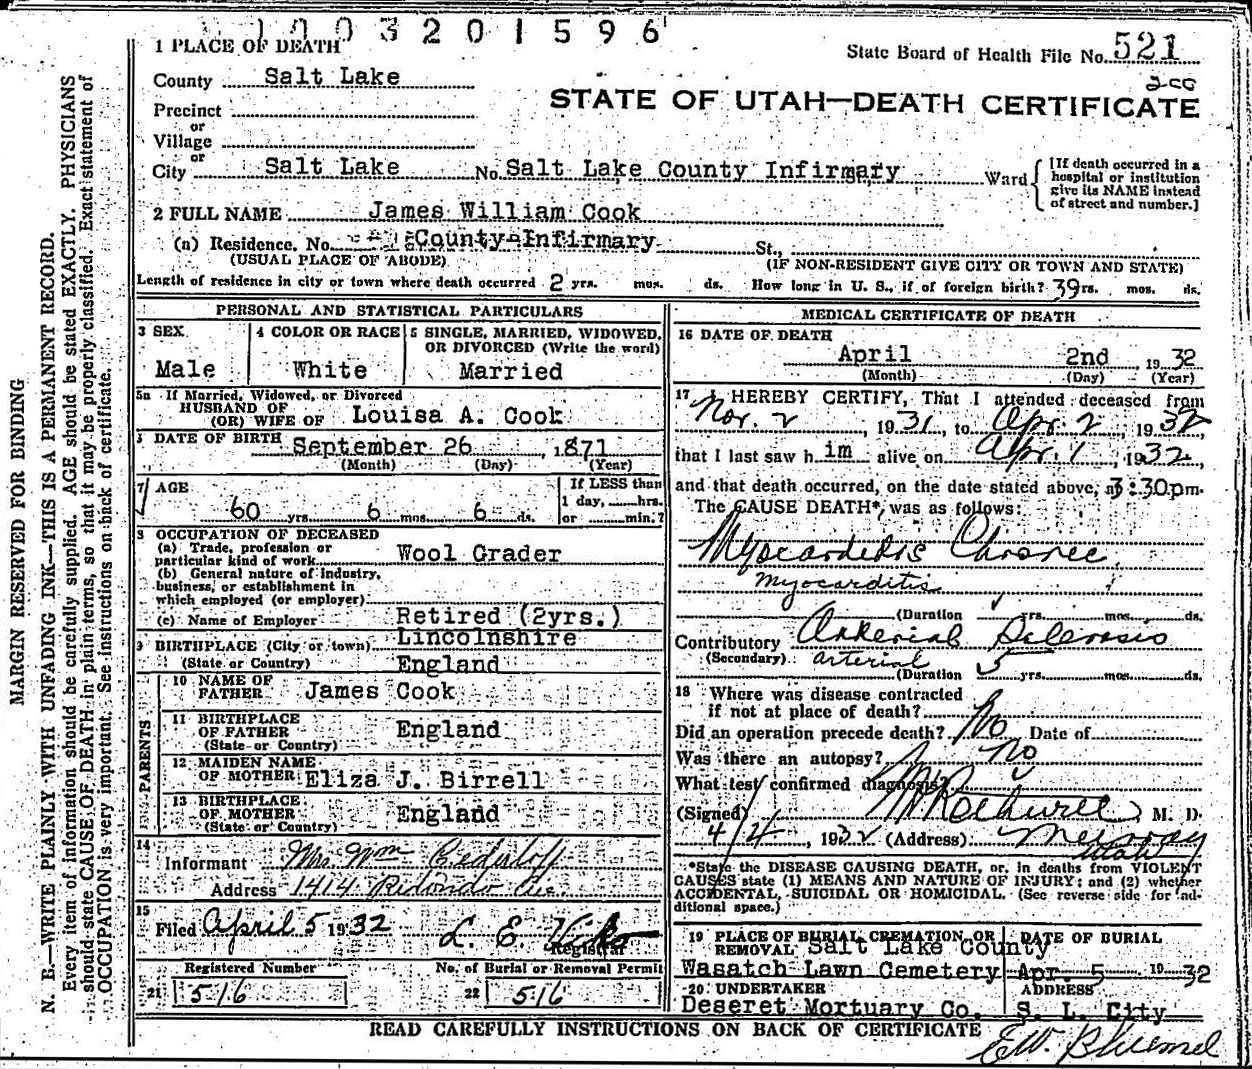 1003201596
1 PLACE OF DEATH
State Board of Health File No. 521
County Salt Lake
200
STATE OF UTAH—DEATH CERTIFICATE
Precinct
or
Village
or
City Salt Lake No. Salt Lake County Infirmary Ward
[If death occurred in a
hospital or institution
give its NAME instead
of street and number.]
2 FULL NAME James William Cook
(a) Residence. No. County Infirmary St.,
(USUAL PLACE OF ABODE) (IF NON-RESIDENT GIVE CITY OR TOWN AND STATE)
Length of residence in city or town where death occurred 2 yrs. mos. ds. How long in U. S., if of foreign birth? 39 rs. mos. ds.
PERSONAL AND STATISTICAL PARTICULARS
3 SEX 4 COLOR OR RACE 5 SINGLE, MARRIED, WIDOWED,
OR DIVORCED (Write the word)
Male White Married
5a If Married, Widowed, or Divorced
HUSBAND OF
(OR) WIFE OF Louisa A. Cook
DATE OF BIRTH September 26, 1871
(Month) (Day) (Year)
7 AGE If LESS than
1 day, hrs.
60 yrs. 6 mos 6 ds. or min.?
8 OCCUPATION OF DECEASED
(a) Trade, profession or
particular kind of work Wool Grader
(b) General nature of industry,
business, or establishment in
which employed (or employer)
(c) Name of Employer Retired (2yrs.)
9 BIRTHPLACE (City or town) Lincolnshire
(State or Country) England
PARENTS
10 NAME OF
FATHER James Cook
11 BIRTHPLACE
OF FATHER England
(State or Country)
12 MAIDEN NAME
OF MOTHER Eliza J. Birrell
13 BIRTHPLACE
OF MOTHER England
(State or Country)
14
Informant Mrs. Wm
Address 1414 Redondo Ave.
15
Filed April 5 1932 L. E.
Registrar
Registered Number No. of Burial or Removal Permit
21 516 22 516
MEDICAL CERTIFICATE OF DEATH
16 DATE OF DEATH
April 2nd 1932
(Month) (Day) (Year)
17 I HEREBY CERTIFY, That I attended deceased from
Nov. 2, 1931, to Apr. 2, 1932
that I last saw him alive on Apr. 1, 1932
and that death occurred, on the date stated above, at 3:30pm.
The CAUSE DEATH*, was as follows:
Myocarditis Chronic
myocarditis
(Duration yrs. mos. ds.
Contributory Arterial Sclerosis
(Secondary) arterial
(Duration 5 yrs. mos. ds.
18 Where was disease contracted
if not at place of death?
Did an operation precede death? No Date of
Was there an autopsy? No
What test confirmed diagnosis?
(Signed) Rothwell M. D.
4/4, 1932 (Address) Murray
Utah
*State the DISEASE CAUSING DEATH, or, in deaths from VIOLENT
CAUSES state (1) MEANS AND NATURE OF INJURY; and (2) whether
ACCIDENTAL, SUICIDAL OR HOMICIDAL. (See reverse side for ad-
ditional space.)
19 PLACE OF BURIAL, CREMATION, OR DATE OF BURIAL
REMOVAL Salt Lake County
Wasatch Lawn Cemetery Apr. 5 1932
20 UNDERTAKER ADDRESS
Deseret Mortuary Co. S. L. City
READ CAREFULLY INSTRUCTIONS ON BACK OF CERTIFICATE
E.W.
MARGIN RESERVED FOR BINDING
N. B.—WRITE PLAINLY WITH UNFADING INK—THIS IS A PERMANENT RECORD.
Every item of information should be carefully supplied. AGE should be stated EXACTLY. PHYSICIANS
should state CAUSE OF DEATH in plain terms, so that it may be properly classified. Exact statement of
OCCUPATION is very important. See instructions on back of certificate.